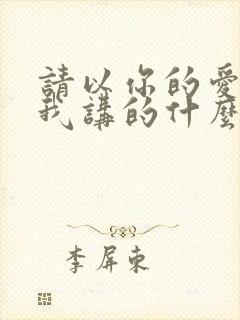 請以你的愛
我講的什麼
李屏東